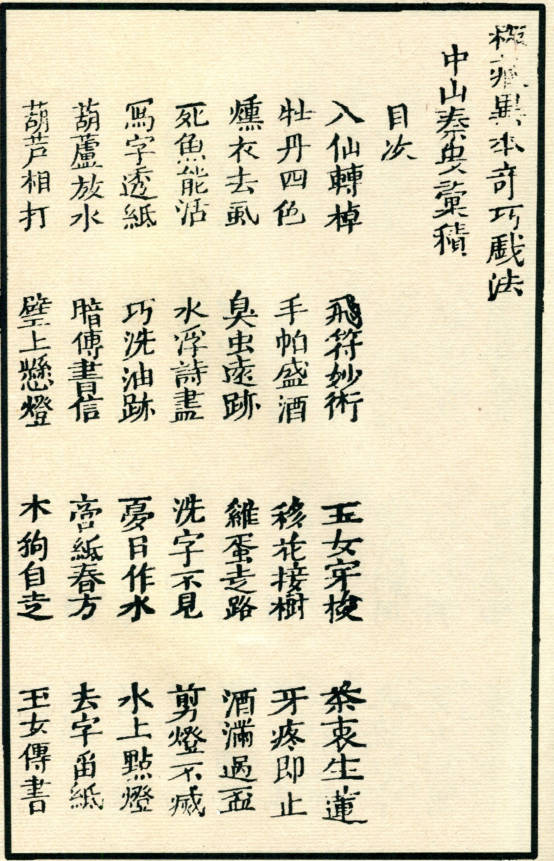 藏異本奇巧戲法
中山秦彙積
目次
八仙轉棹 飛符妙術 玉女穿梭 茶衷生蓮
牡丹四色 手帕盛酒 移花接樹 牙疼即止
燻衣去虱 臭虫遠跡 雞蛋走路 酒滿過盃
死魚能活 水浮詩畫 洗字不見 剪燈不滅
寫字透紙 巧洗油跡 夏日作水 水上點燈
葫蘆放水 暗傳書信 紙春方 去字留紙
葫芦相打 壁上懸燈 木狗自走 玉女傳書